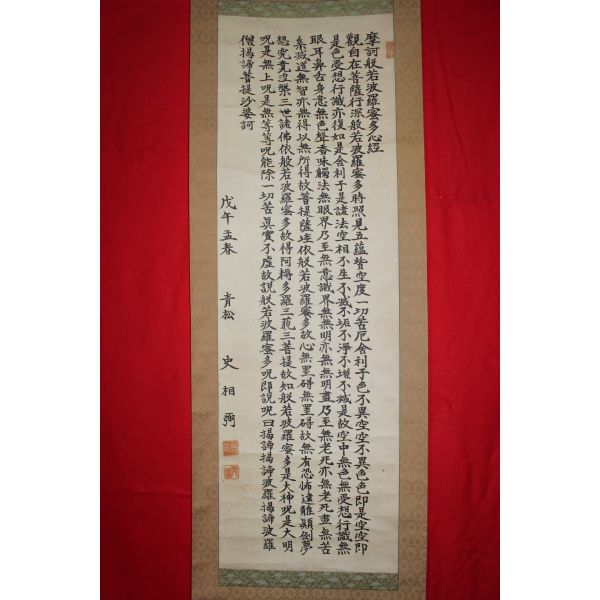 摩訶般若波羅蜜多心經
觀自在菩薩行深般若波羅蜜多時照見五蘊皆空度一切苦厄舍利子色不異空空不異色色即是空空即
是色受想行識亦復如是舍利子是諸法空相不生不滅不垢不淨不增不減是故空中無色無受想行識無
眼耳鼻舌身意無色聲香味觸法無眼界乃至無意識界無無明亦無無明盡乃至無老死亦無老死盡無苦
集滅道無智亦無得以無所得故菩提薩埵依般若波羅蜜多故心無罣碍無罣碍故無有恐怖遠離顛倒夢
想究竟涅槃三世諸佛依般若波羅蜜多故得阿耨多羅三藐三菩提故知般若波羅蜜多是大神呪是大明
呪是無上呪是無等等呪能除一切苦眞實不虛故説般若波羅蜜多呪即説呪曰揭諦揭諦波羅揭諦波羅
僧揭諦菩提沙婆訶
戊午孟春 青松 史相弼